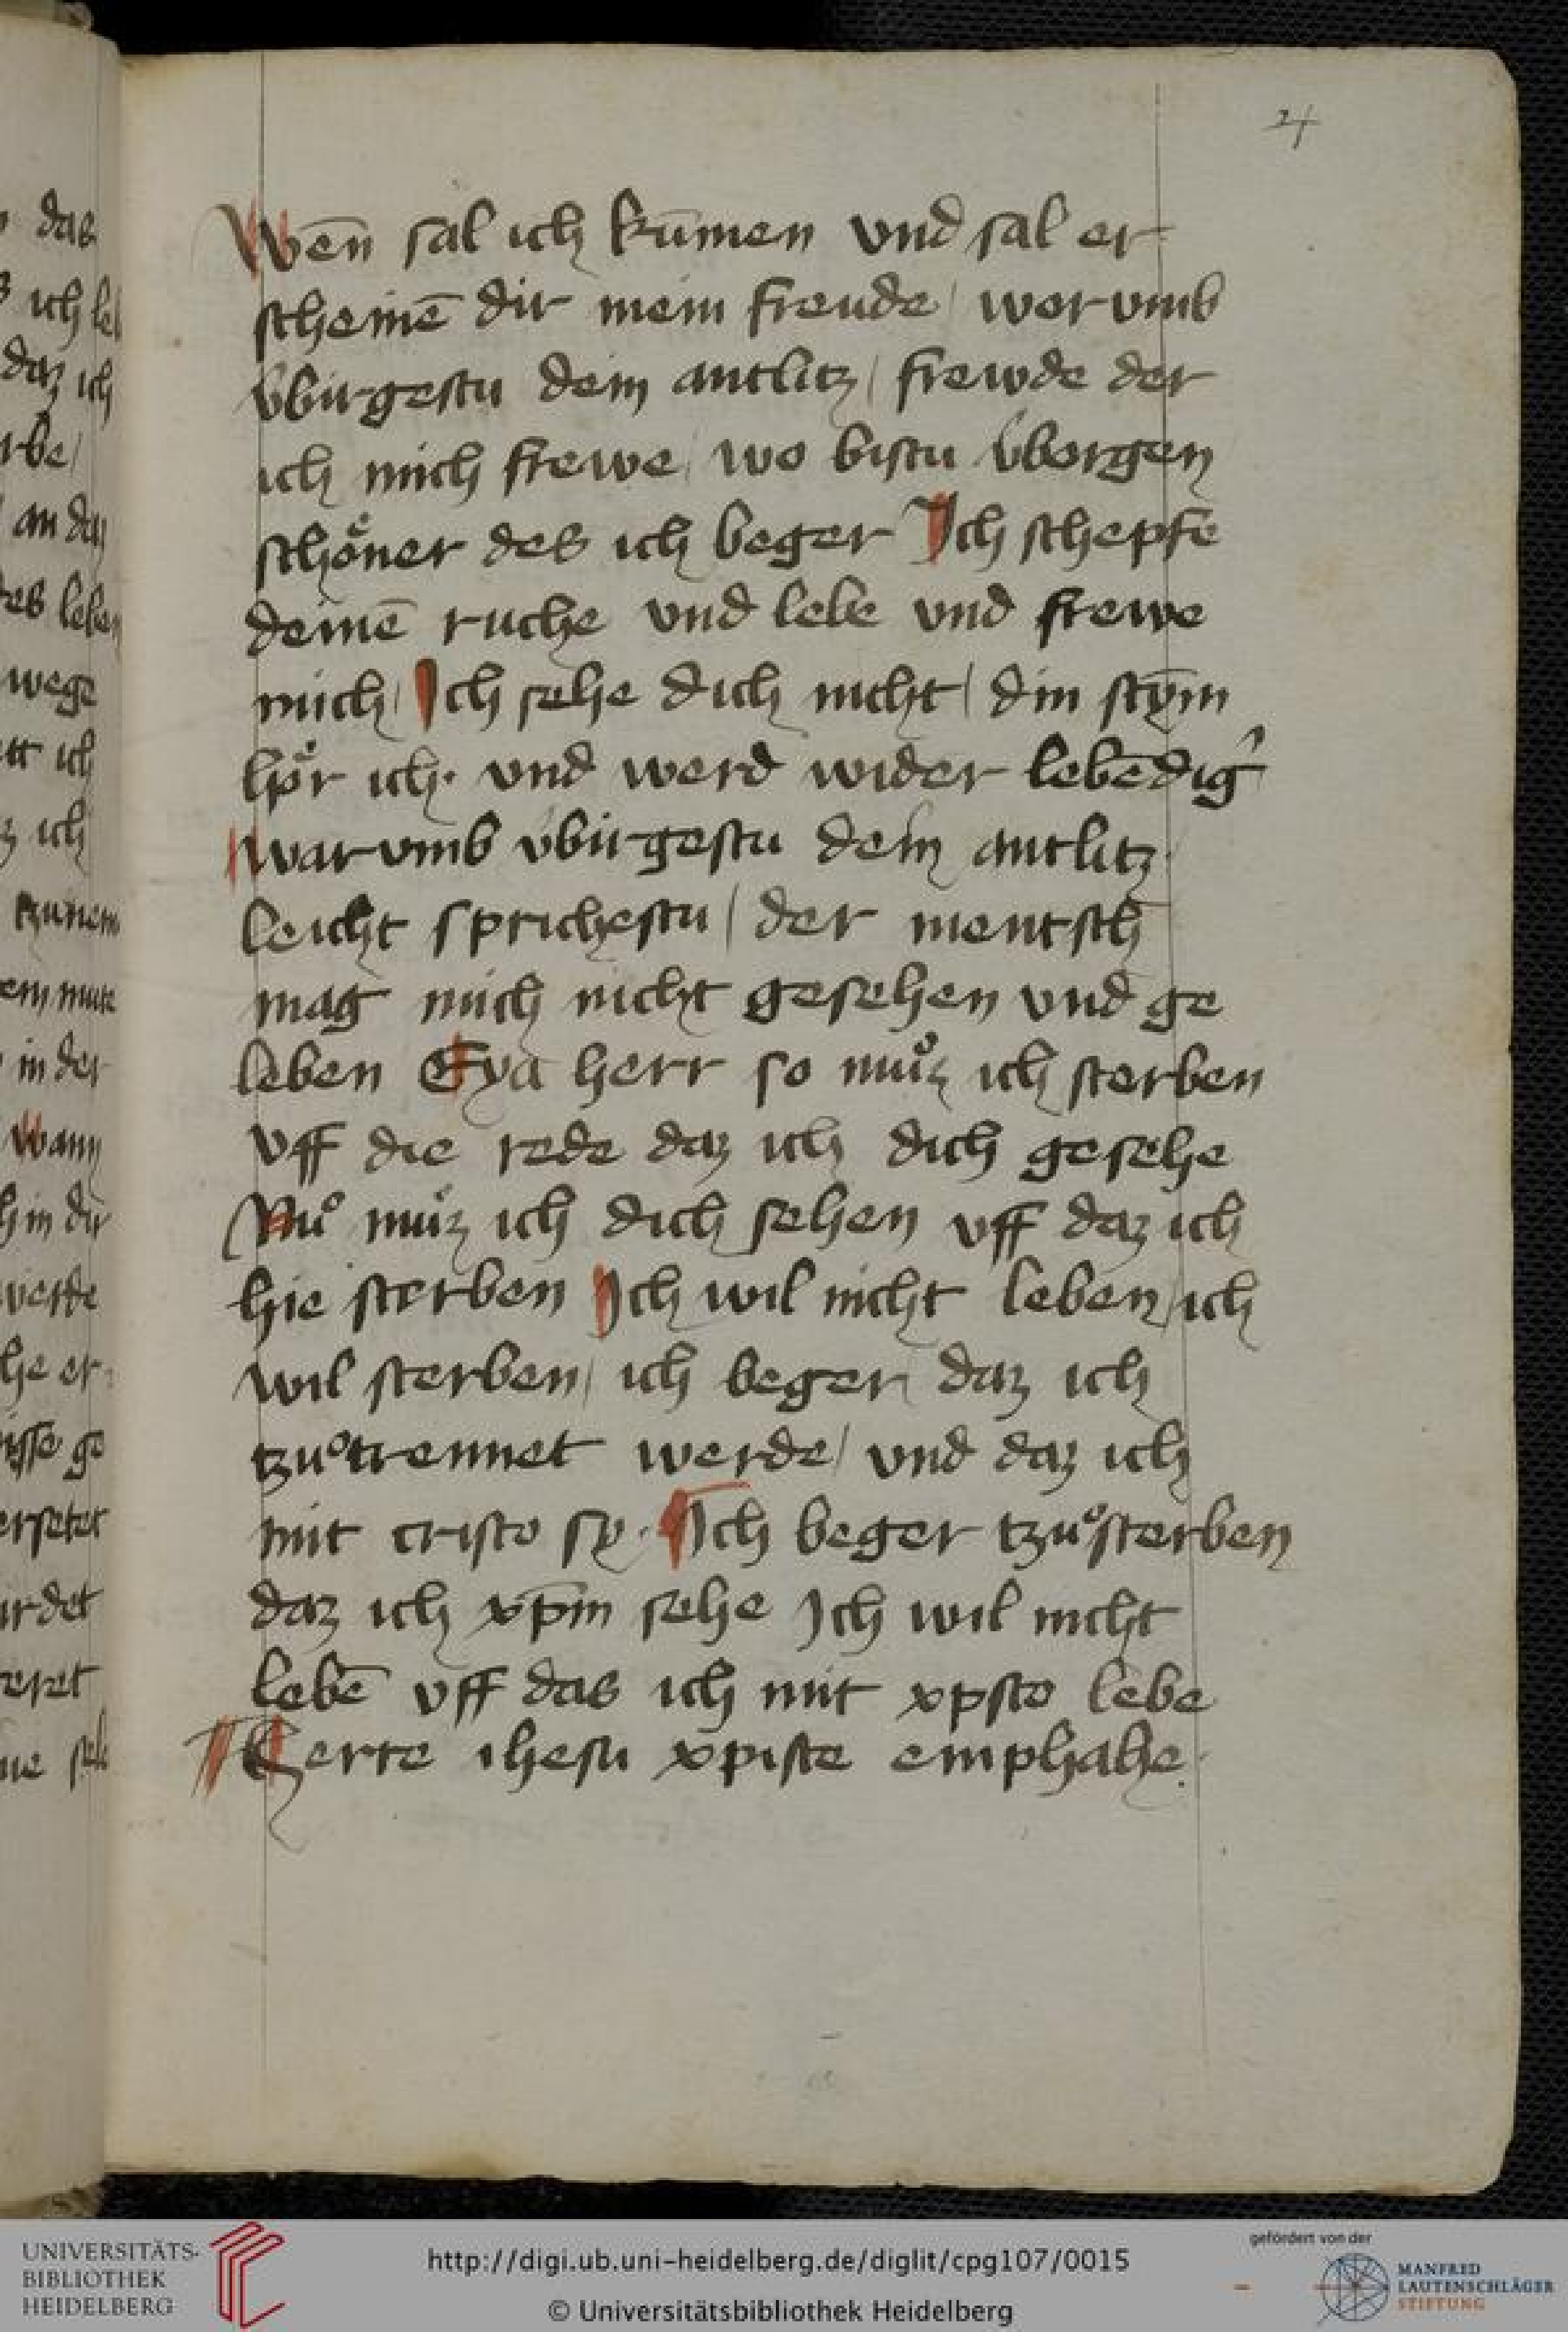 24
Wen̄ sal ich kūmen vnd sal er
scheinē dir mein freude / worvmb
v̓birgestu dein antlitz / frewde der
ich mich frewe / wo bistu v̓borgen
schoͤner des ich beger Ich schepfe
deinē ruche vnd lebe vnd frewe
mich / Ich sehe dich nicht / din stym̄
hoͤr ich · vnd werd wider lebēdig̓
warvmb v̓birgestu dein antlitz ·
leicht sprichestu / der mentsch
mag mich nicht gesehen vnd ge
leben Eya herr so muͦz ich sterben
vff die rede daz ich dich gesehe
Nuͦ muͦz ich dich sehen vff daz ich
hie sterben Ich wil nicht leben / ich
wil sterben / ich beger daz ich
tzuͦtrennet werde / vnd daz ich
mit cristo sy · Ich beger tzuͦsterben
daz ich xp̄m sehe Ich wil nicht
lebē vff das ich mit xpsto lebe
Herre ihesu xpiste emphahe ·
UNIVERSITÄTS-
BIBLIOTHEK
HEIDELBERG
http://digi.ub.uni-heidelberg.de/diglit/cpg107/0015
© Universitätsbibliothek Heidelberg
gefördert von der
MANFRED
LAUTENSCHLÄGER
STIFTUNG